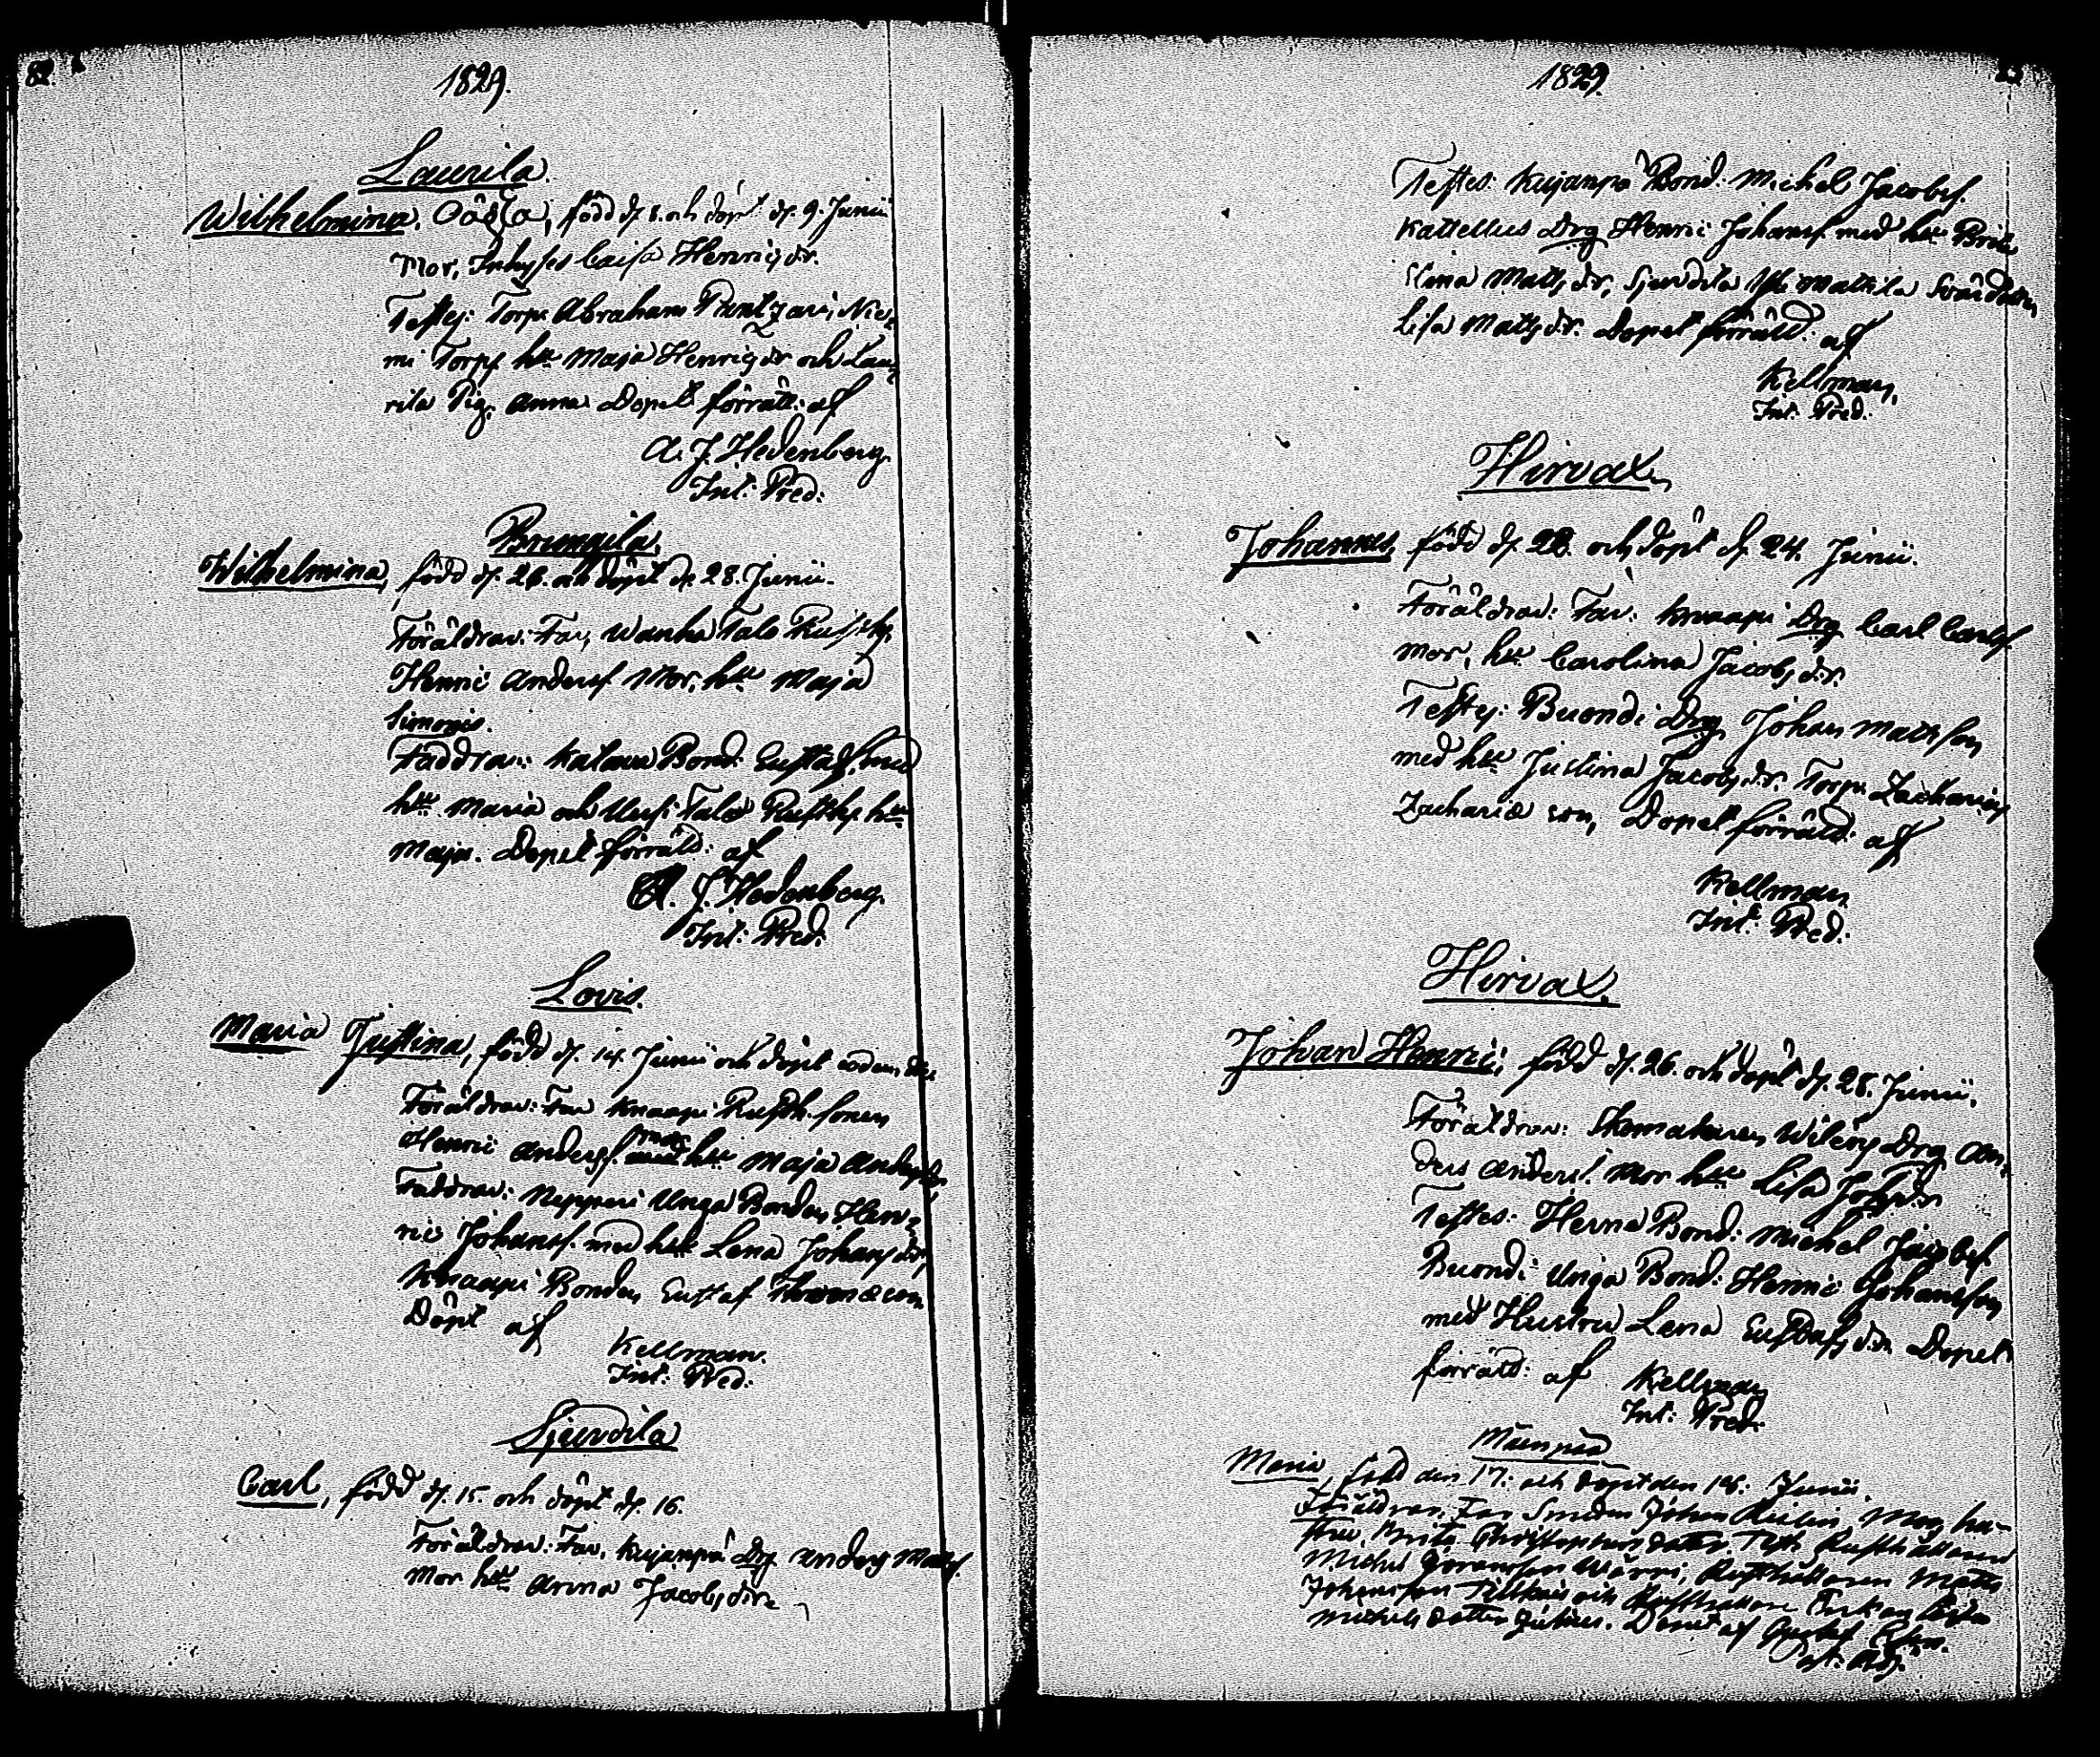 82.
1829.
Laurila.
Wilhelmina, Oäcta, född d. 8. och döpt d. 9. Junii
Mor, Inhyses Caisa Henrigsdr.
Testes: Torp. Abraham Prentzari, Nie-
mi Torps. hu Maja Henrigsdr och Lau-
rila Pig. Anna. Dopet förrätt: af
A. J. Hedenberg.
Int: Pred:
Wilhelmina, född d. 26. och döpt d. 28. Junii.
Föräldrar: Far, Wanha Talo Rusth.
Henric Andersf. Mor, hu Maja
Simonis.
Faddrar: Bond: Gustaf, med
hu Maria och Uusi Talo Rusth. hu
Maja. Dopet förrätt: af
A. J. Hedenberg.
Int: Pred:
Lovis.
Maria Justina, född d. 14. Junii och döpt
Föräldrar: Far Knaapi Rusth. sonen
Henric Andersf. Mor hu Maja Andersdr
Faddrar: Nepperi Unga Bonden Hen-
ric Johansf. med hu Lena Johansdr,
Knaapi Bonden Gustaf Thomæ son
Döpt af
Kellman.
Int: Pred:
Sjundila
Carl, född d. 15. och döpt d. 16.
Föräldrar: Far, Kujanpä Drg Anders Matsf.
Mor hu Anna Jacobsdr.
1829.
Testes: Kujanpä Bond: Michel Jacobsf.
Kattellus Drg Henric Johansf. med hu Brita
Stina Matsdr, Sjundila Mattila
Lisa Matsdr. Dopet förrätt: af
Kellman,
Int: Pred:
Hirvax,
Johannes, född d. 23. och döpt d. 24. Junii.
Föräldrar: Far: Knaapi Drg Carl Carlsf.
Mor, hu Carolina Jacobsdr.
Testes: Buondi Drg Johan Mathsson
med hu Justina Jacobsdr. Torp. Zacharias
Zachariæ son, Dopet förrätt: af
Kellman
Int: Pred:
Hirvax.
Johan Henric, född d. 26. och döpt d. 28. Junii.
Föräldrar: Skomakaren Drg An-
ders Andersf. Mor hu Lisa Johsdr
Testes: Herna Bond: Michel Jacobsf.
Buondi Unga Bond: Henric Johansson
med Hustru Lena Gustafsdr. Dopet
förrätt: af Kellman
Int: Pred:
Maria, född den 17: och döpt den 18: Junii.
Föräldrar. Far Smeden Johan Mor hu-
stru Brita Christophers dotter. Test. Rusthållaren
Michel Göransson Rusthållaren Matts
Johansson och Rusthållare Enkan
Michels dotter Döpt af Gustaf